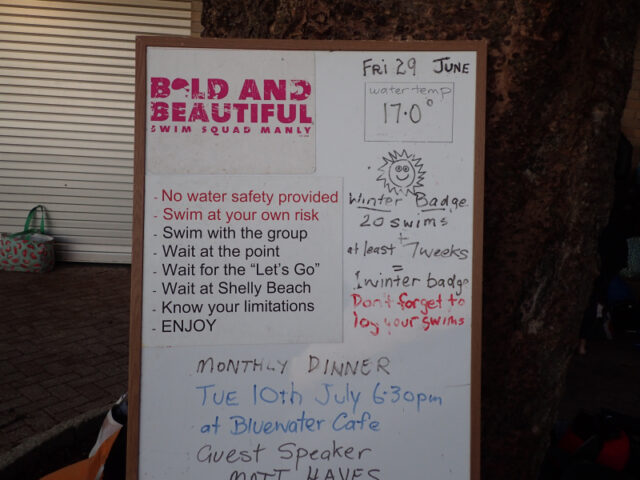 BOLD AND
BEAUTIFUL
SWIM SQUAD MANLY
FRI 29 JUNE
water temp
17.0°
- No water safety provided
- Swim at your own risk
- Swim with the group
- Wait at the point
- Wait for the "Let's Go"
- Wait at Shelly Beach
- Know your limitations
- ENJOY
Winter Badge
20 swims
+
at least 7 weeks
=
1 winter badge
Don't forget to
log your swims
MONTHLY DINNER
TUE 10th July 6.30pm
at Bluewater Cafe
Guest Speaker
MATT HAYES